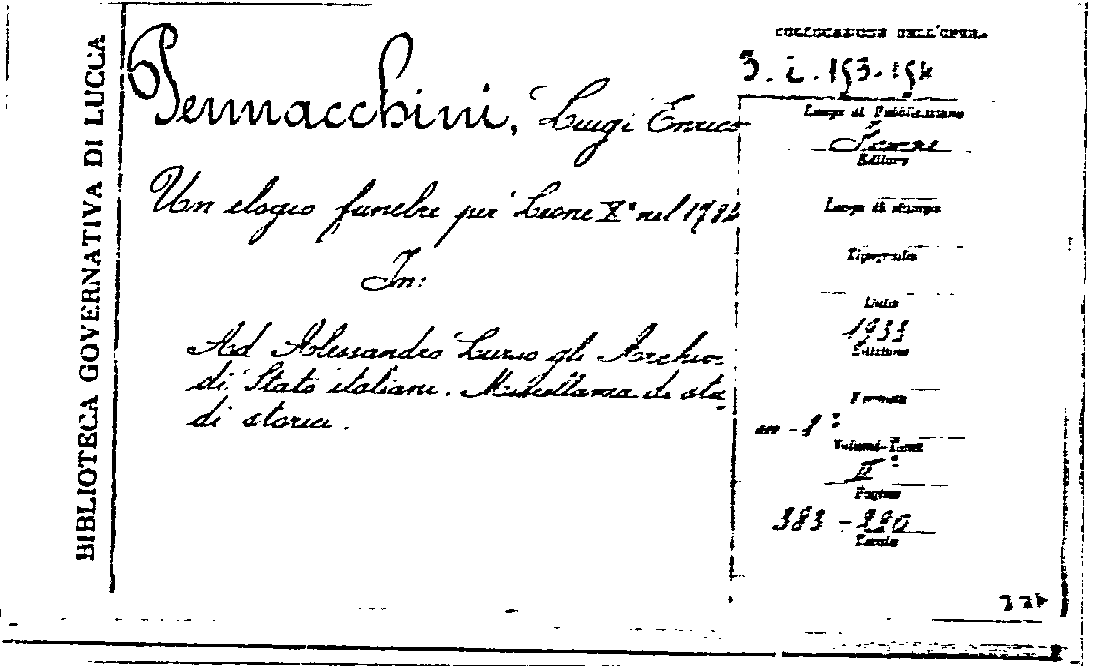 BIBLIOTECA GOVERNATIVA DI LUCCA
Pennacchini, Luigi Enrico
Un elogio funebre per Leone X° nel
In:
Ad Alessandro Luzio gli Archi-
di Stato italiani. Miscellanea di stu-
di storia.
COLLOCAZIONE DELL'OPERA
3. i. 193.194
Luogo di Pubblicazione
Firenze
Editore
Luogo di stampa
Tipografia
Data
1933
Edizione
Formato
in-8°
Volumi-Tomi
II°
Pagine
383 -
Tavole